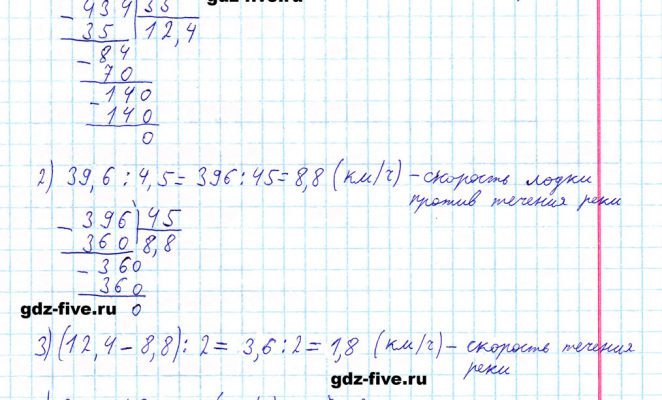 gdz-five.ru
- 434 | 35
35 | 12,4
- 84
70
- 140
140
0
2) 39,6 : 4,5 = 396 : 45 = 8,8 (км/ч) - скорость лодки
против течения реки
- 396 | 45
360 | 8,8
- 360
360
0
gdz-five.ru
3) (12,4 - 8,8) : 2 = 3,6 : 2 = 1,8 (км/ч) - скорость течения
реки
gdz-five.ru